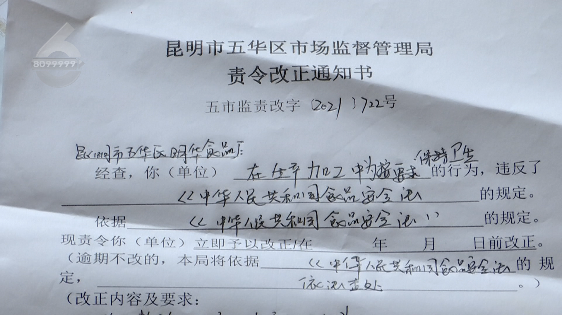 6099999
昆明市五华区市场监督管理局
责令改正通知书
五市监责改字〔2021〕722号
昆明市五华区明华食品厂
经查，你（单位）在生产加工中为按要求保持卫生的行为，违反了
《中华人民共和国食品安全法》的规定。
依据《中华人民共和国食品安全法》的规定。
现责令你（单位）立即予以改正/在 年 月 日前改正。
（逾期不改的，本局将依据《中华人民共和国食品安全法》的规
定，依法查处。）
（改正内容及要求：